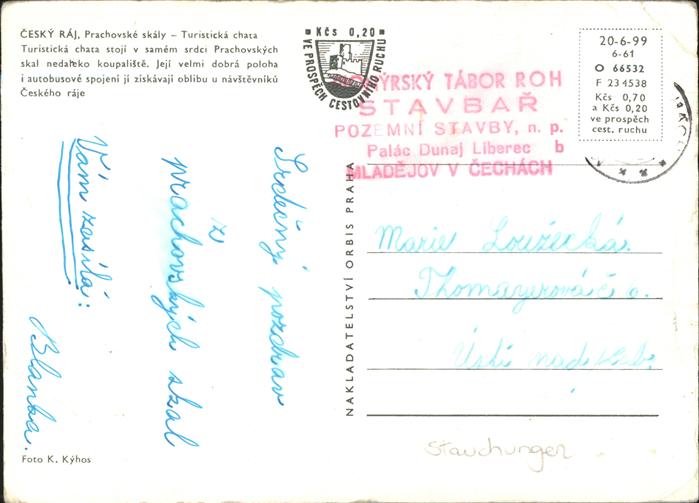 ČESKÝ RÁJ, Prachovské skály – Turistická chata
Turistická chata stojí v samém srdci Prachovských
skal nedaleko koupaliště. Její velmi dobrá poloha
i autobusové spojení jí získávají oblibu u návštěvníků
Českého ráje
Kčs 0,20
VE PROSPĚCH CESTOVNÍHO RUCHU
20-6-99
6-61
O 66532
F 234538
Kčs 0,70
a Kčs 0,20
ve prospěch
cest. ruchu
PÝRSKÝ TÁBOR ROH
STAVBAŘ
POZEMNÍ STAVBY, n. p.
Palác Dunaj Liberec b
MLADĚJOV V ČECHÁCH
Srdečný pozdrav
z
prachovských skal
Vám zasílá:
Blanka.
NAKLADATELSTVÍ ORBIS PRAHA
Marie Loužecká.
Thomayerová č
Ústí nad Lab.
Stauchungen
Foto K. Kýhos